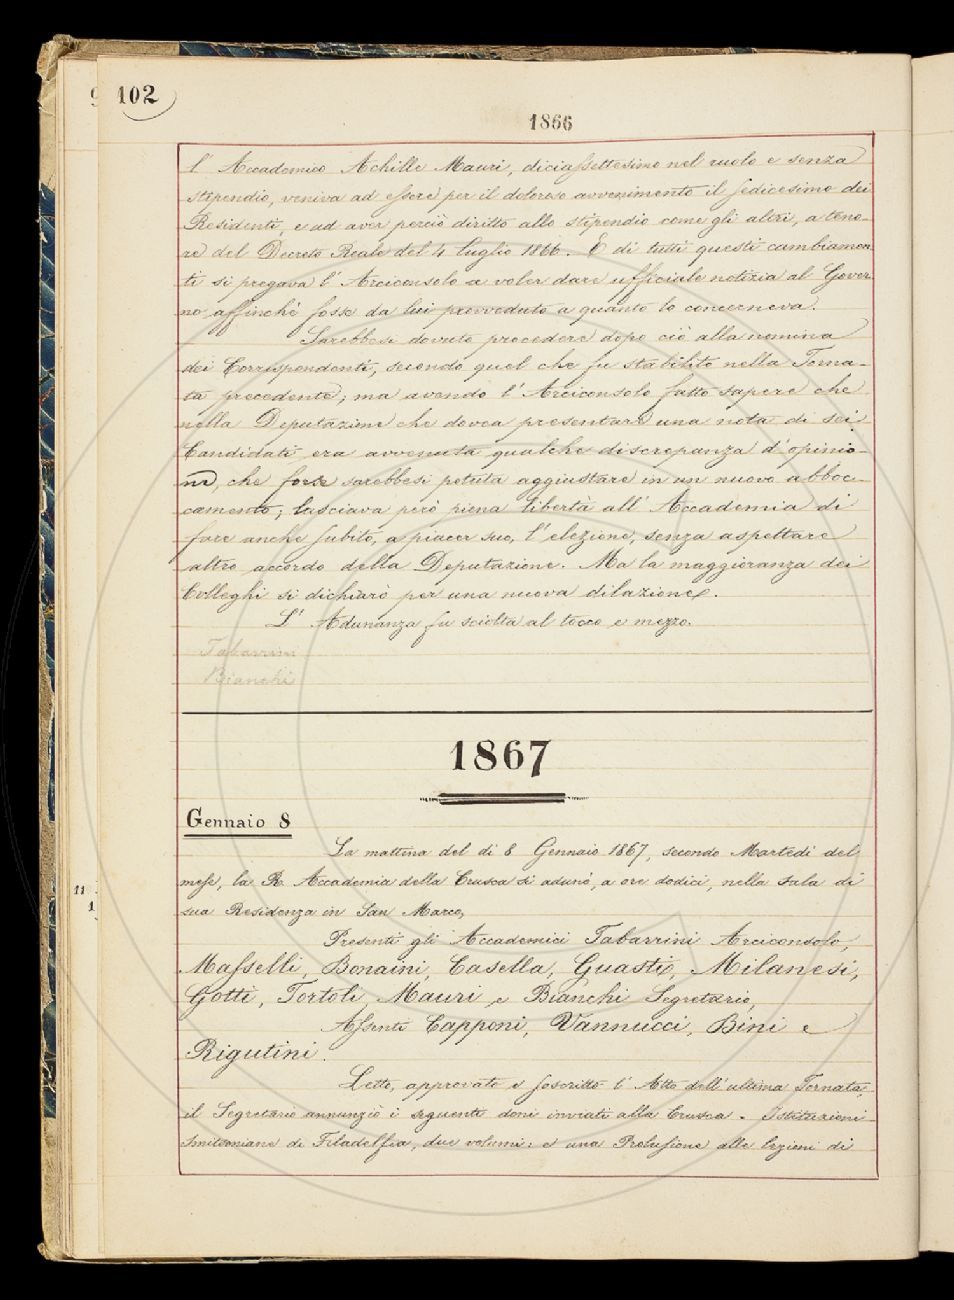 102
1866
l' Accademico Achille Mauri, diciassettesimo nel ruolo e senza
stipendio, veniva ad essere per il doloroso avvenimento il sedicesimo dei
Residenti, e ad aver perciò diritto allo stipendio come gli altri, a teno-
re del Decreto Reale del 4 luglio 1866. E di tutti questi cambiamen
ti si pregava l' Arciconsolo a voler dare ufficiale notizia al Gover
no affinchè fosse da lui provveduto a quanto lo concerneva.
Sarebbesi dovuto procedere dopo ciò alla nomina
dei Corrispondenti, secondo quel che fu stabilito nella Torna-
ta precedente; ma avendo l' Arciconsolo fatto sapere che
nella Deputazione che dovea presentare una nota di sei
Candidati era avvenuta qualche discrepanza d' opinio-
ne, che forse sarebbesi potuta aggiustare in un nuovo abboc-
camento; lasciava però piena libertà all' Accademia di
fare anche subito, a piacer suo, l' elezione, senza aspettare
altro accordo della Deputazione. Ma la maggioranza dei
Colleghi si dichiarò per una nuova dilazione.
L' Adunanza fu sciolta al tocco e mezzo.
Tabarrini
Bianchi
1867
Gennaio 8
La mattina del di 8 Gennaio 1867, secondo Martedì del
mese, la R. Accademia della Crusca si adunò, a ore dodici, nella sala di
sua Residenza in San Marco,
Presenti gli Accademici Tabarrini Arciconsolo,
Masselli, Bonaini, Casella, Guasti, Milanesi,
Gotti, Tortoli, Mauri e Bianchi Segretario,
Assenti Capponi, Vannucci, Bini e
Rigutini.
Letto, approvato e soscritto l' Atto dell' ultima Tornata,
il Segretario annunziò i seguenti doni inviati alla Crusca. Istituzioni
Smitsoniane di Filadelfia, due volumi: e una Prolusione alle lezioni di
11
1